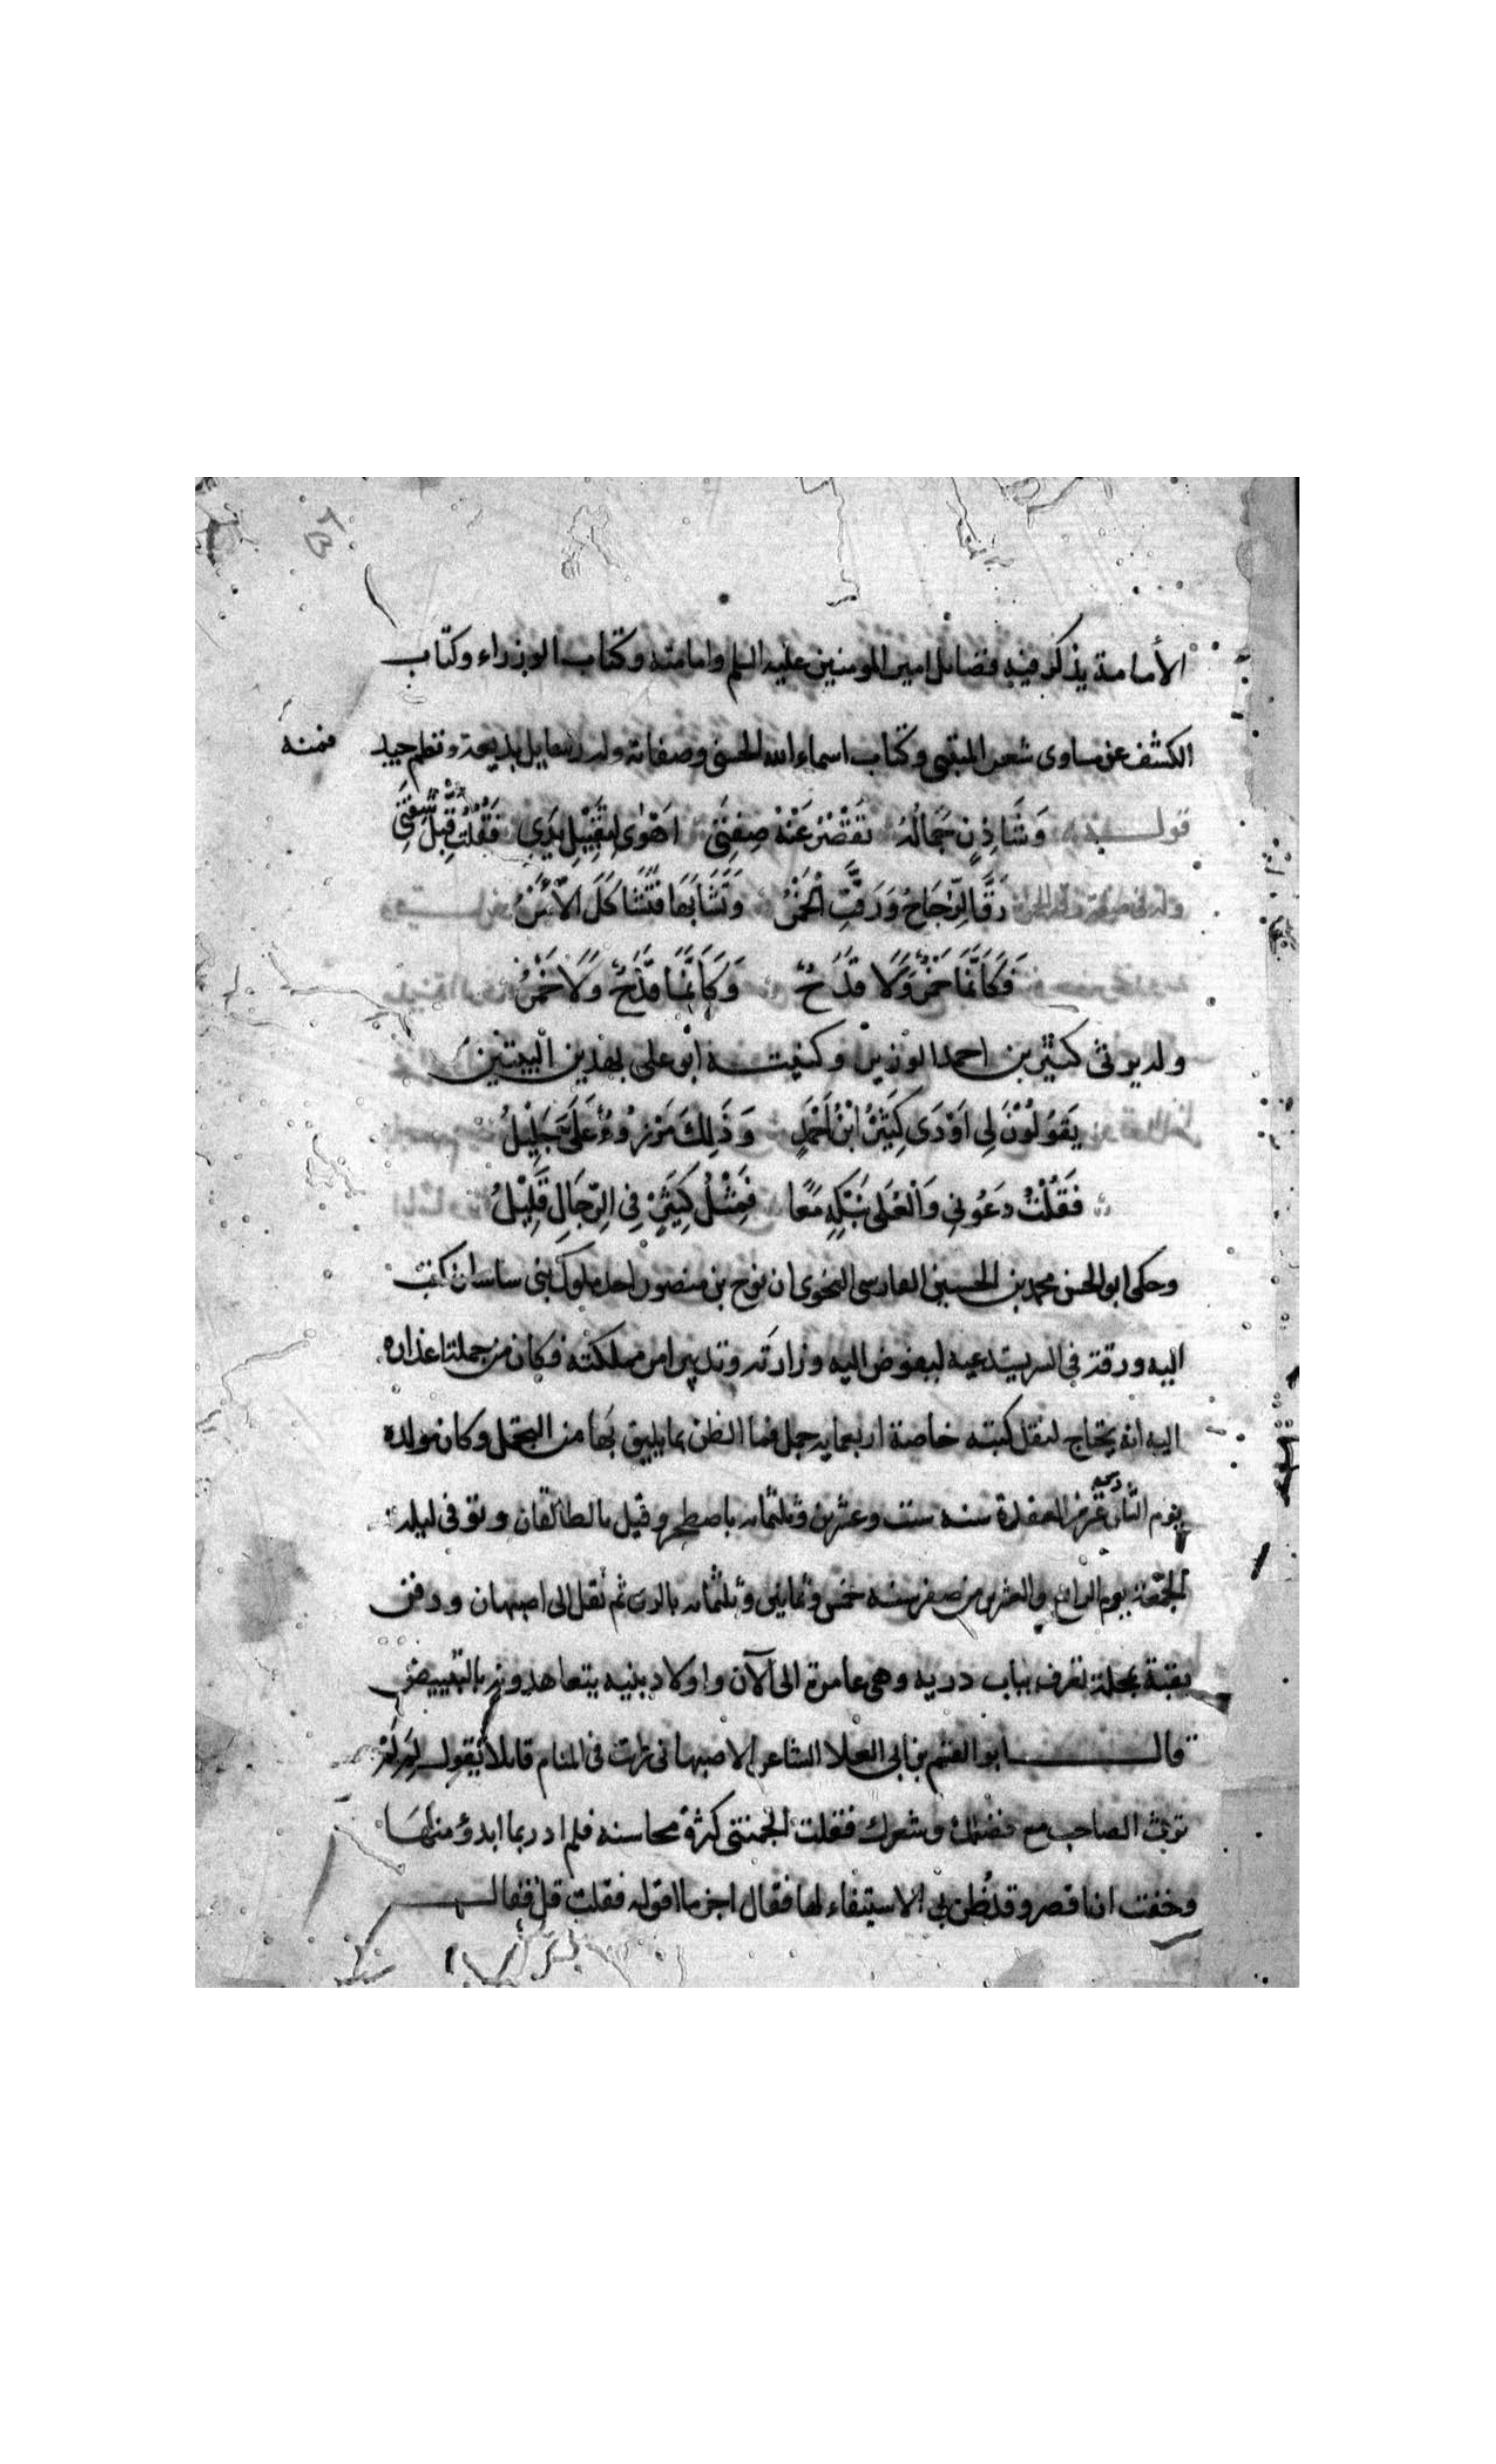 الأمامة يذكر فيه فضائل امير المومنين عليه السلم وامامته وكتاب الوزراء وكتاب
الكشف عن مساوى شعر المتنبى وكتاب اسماء الله الحسنى وصفاته وله رسايل بديعة ونظم جيد فمنه
قولـه وَشَاذِنٍ جَمَالُهُ تَقْصُرُ عَنْهُ صِفَتِى اَهْوٰى لِتَقْبِيْلِ يَدِى فَقُلْتُ قَبِّلْ شَفَتَى
وله فى رقة الخمر رَقَّ الزّجَاجُ وَرَقَّتِ الْخَمْرُ وَتَشَابَهَا فَتَشَاكَلَ الاَمْرُ
فَكَاَنَّمَا خَمْرٌ وَلَا قَدَحٌ وَكَاَنَّمَا قَدَحٌ وَلَا خَمْرُ
وله يرثى كثير بن احمد الوزير وكنيته ابو على بهذين البيتين
يَقُوْلُوْنَ لِى اَوْدَى كَثِيْرُ ابْنُ اَحْمَدٍ وَذَلِكَ مَرْزُوءٌ عَلَىَّ جَلِيْلُ
فَقُلْتُ دَعُوْنِى وَالْعُلَى نَبْكِهِ مَعًا فَمِثْلُ كَثِيْرٍ فِى الرّجَالِ قَلِيْلُ
وحكى ابو الحسن محمد بن الحسين الفارسى النحوى ان نوح بن منصور احد ملوك بنى ساسان كتب
اليه ورقة فى السر يستدعيه ليفوض اليه وزارته وتدبير امر مملكته فكان من جملة اعذاره
اليه انه يحتاج لنقل كتبه خاصة اربعمايه جمل فما الظن بما يليق بها من التجمل وكان مولده
يوم عشر من القعدة سنه ست وعشرين وثلثمايه باصطخر وقيل بالطالقان وتوفى ليله
الجمعة يوم الرابع والعشرين من صفر سنه خمس وثمانين وثلثمايه بالرى ثم نقل الى اصبهان ودفن
بقبة بمحلة تعرف بباب دريه وهى عامرة الى الآن واولاد بنيه يتعاهدونها بالتبييض
قالـــ ابو القسم بن ابى العلا الشاعر الاصبهانى رايت فى المنام قايلا يقول لى لم لم
ترث الصاحب مع فضلك وشعرك فقلت الجمتنى كثرة محاسنه فلم ادر بما ابدؤ منها
وخفت ان اقصر وقد ظن بى الاستيفاء لها فقال اجز ما اقوله فقلت قل فقالـــ